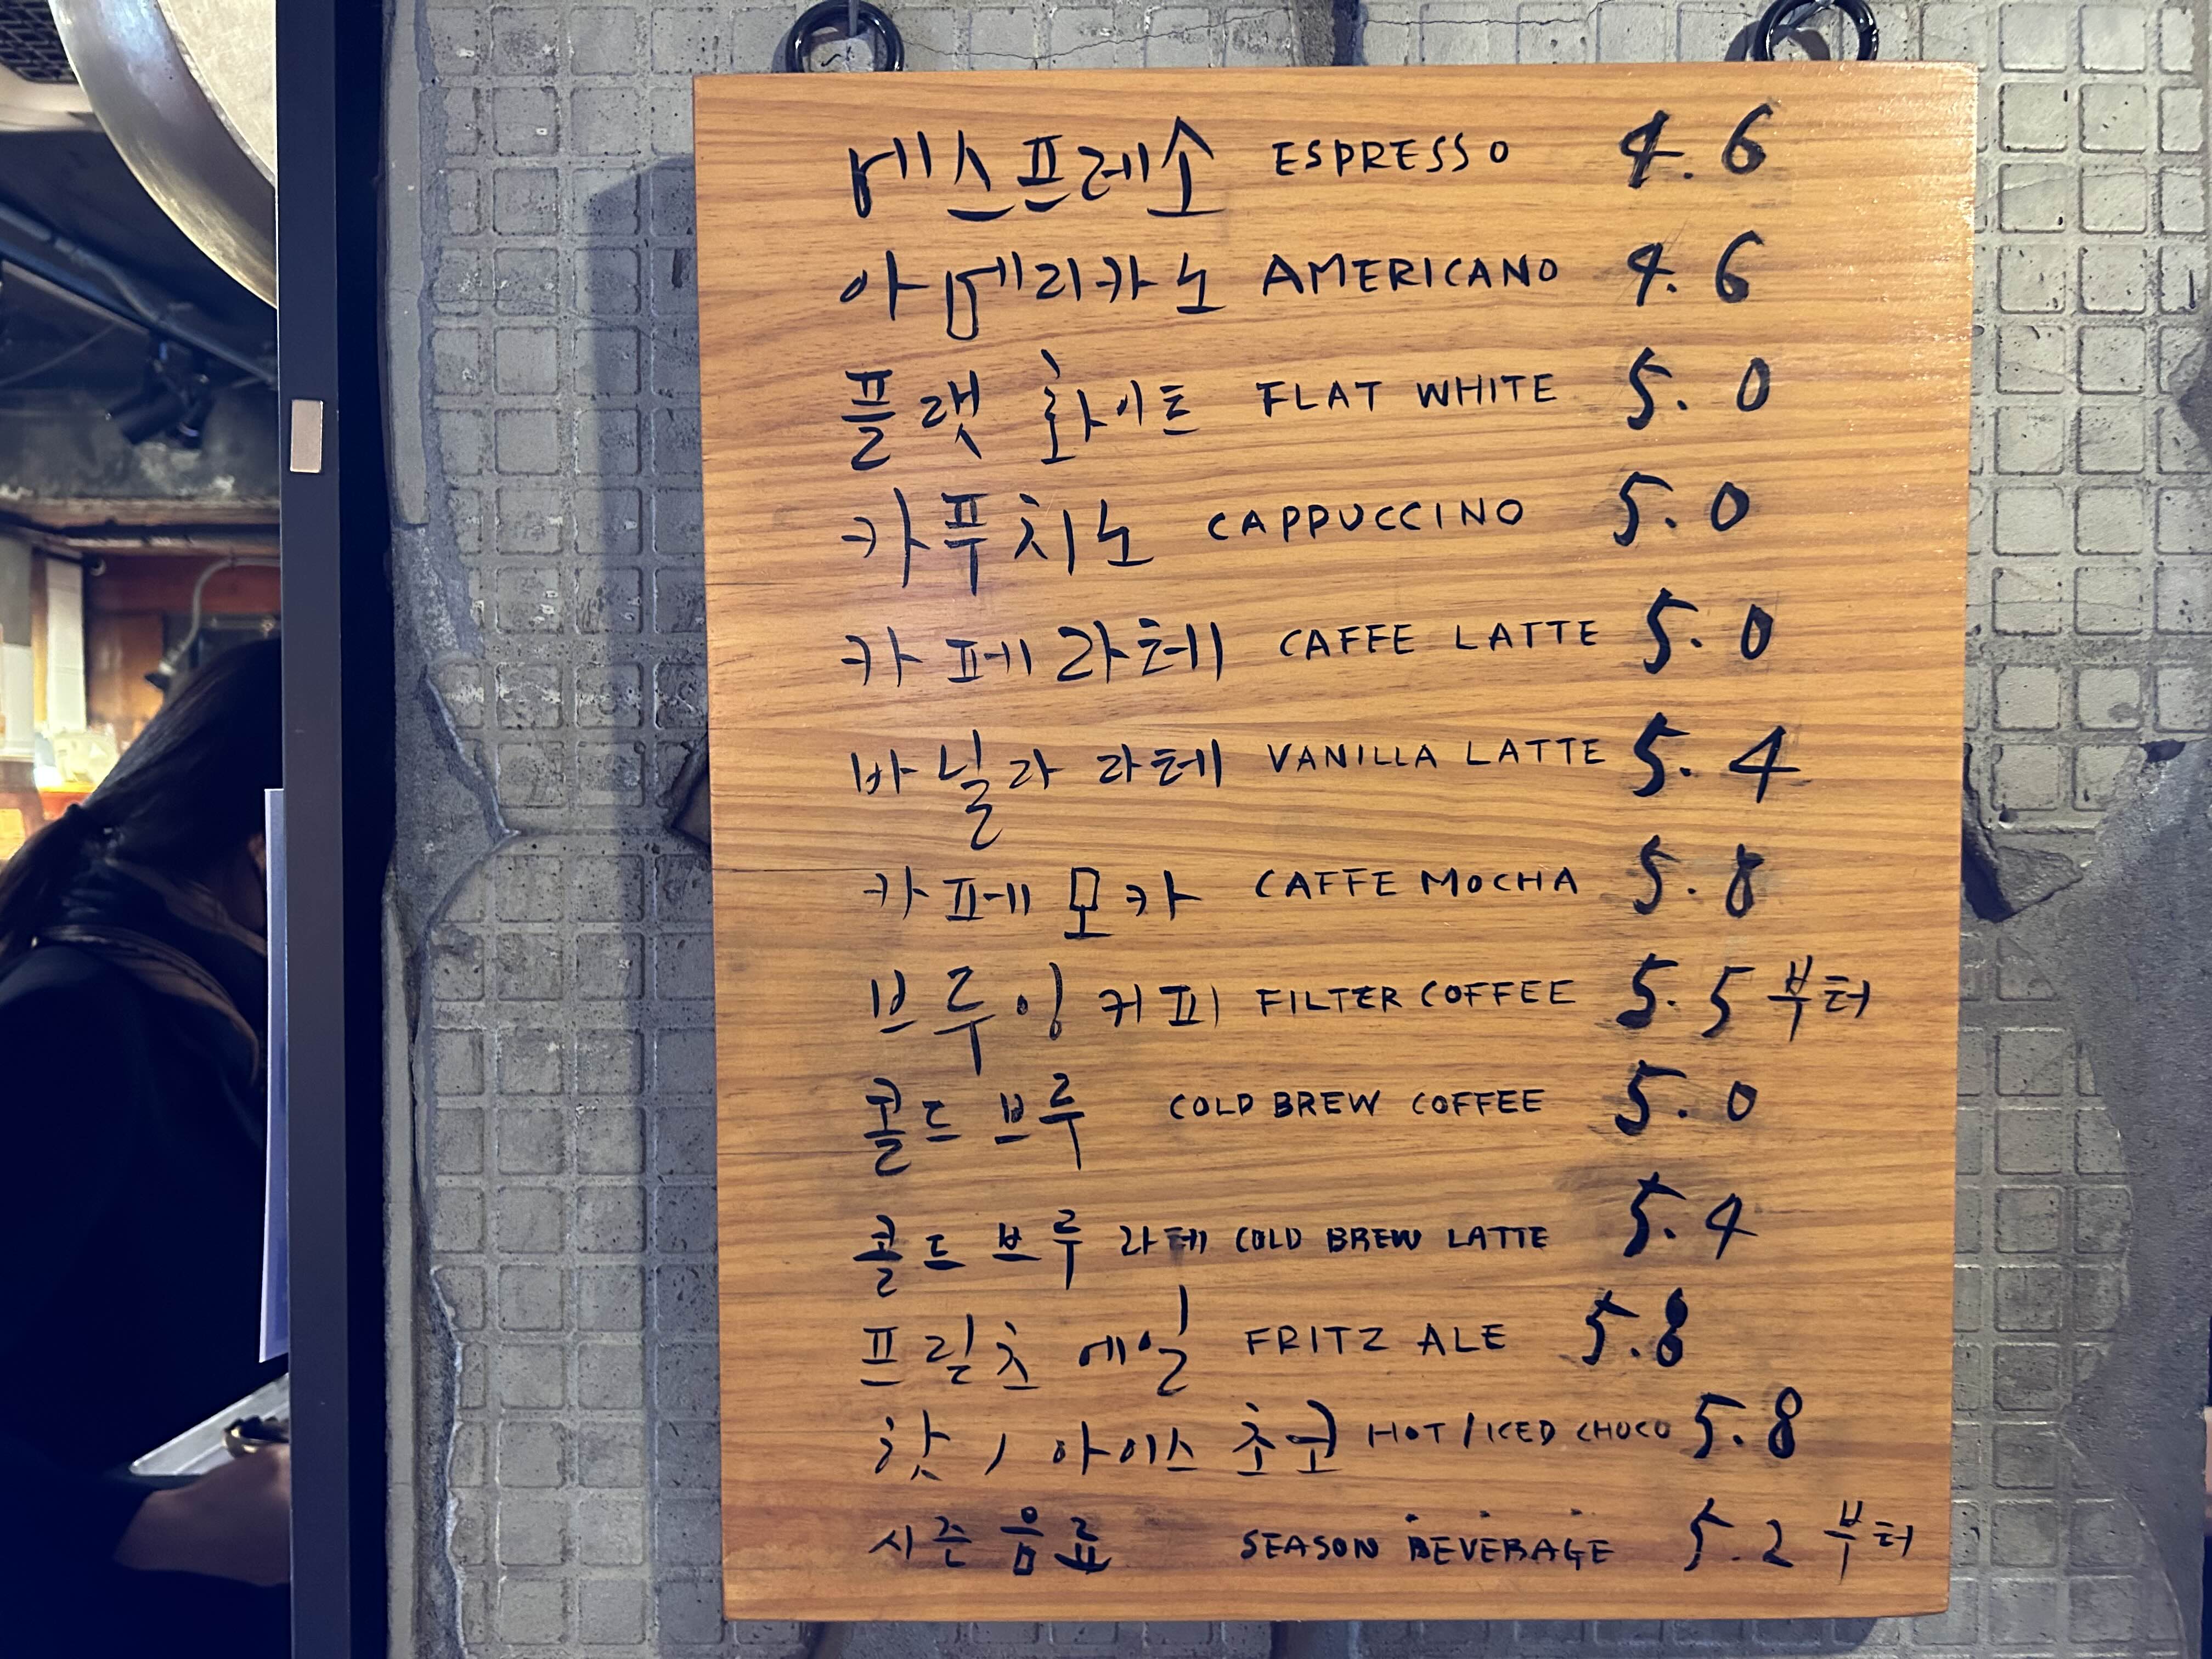 에스프레소 ESPRESSO 4.6
아메리카노 AMERICANO 4.6
플랫 화이트 FLAT WHITE 5.0
카푸치노 CAPPUCCINO 5.0
카페라테 CAFFE LATTE 5.0
바닐라 라테 VANILLA LATTE 5.4
카페 모카 CAFFE MOCHA 5.8
브루잉 커피 FILTER COFFEE 5.5 부터
콜드 브루 COLD BREW COFFEE 5.0
콜드 브루 라테 COLD BREW LATTE 5.4
프릳츠 에일 FRITZ ALE 5.8
핫 / 아이스 초코 HOT / ICED CHOCO 5.8
시즌 음료 SEASON BEVERAGE 5.2 부터